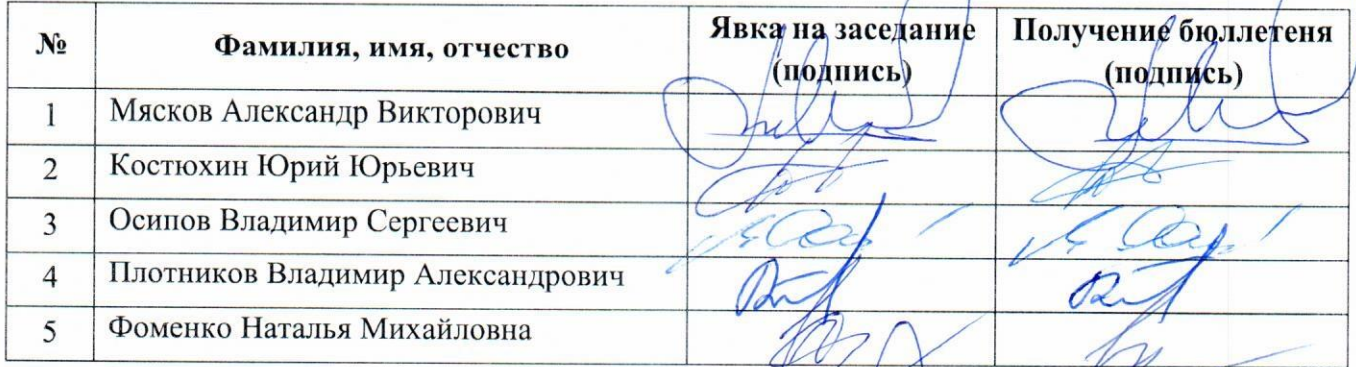 № Фамилия, имя, отчество Явка на заседание (подпись) Получение бюллетеня (подпись)
1 Мясков Александр Викторович
2 Костюхин Юрий Юрьевич
3 Осипов Владимир Сергеевич
4 Плотников Владимир Александрович
5 Фоменко Наталья Михайловна